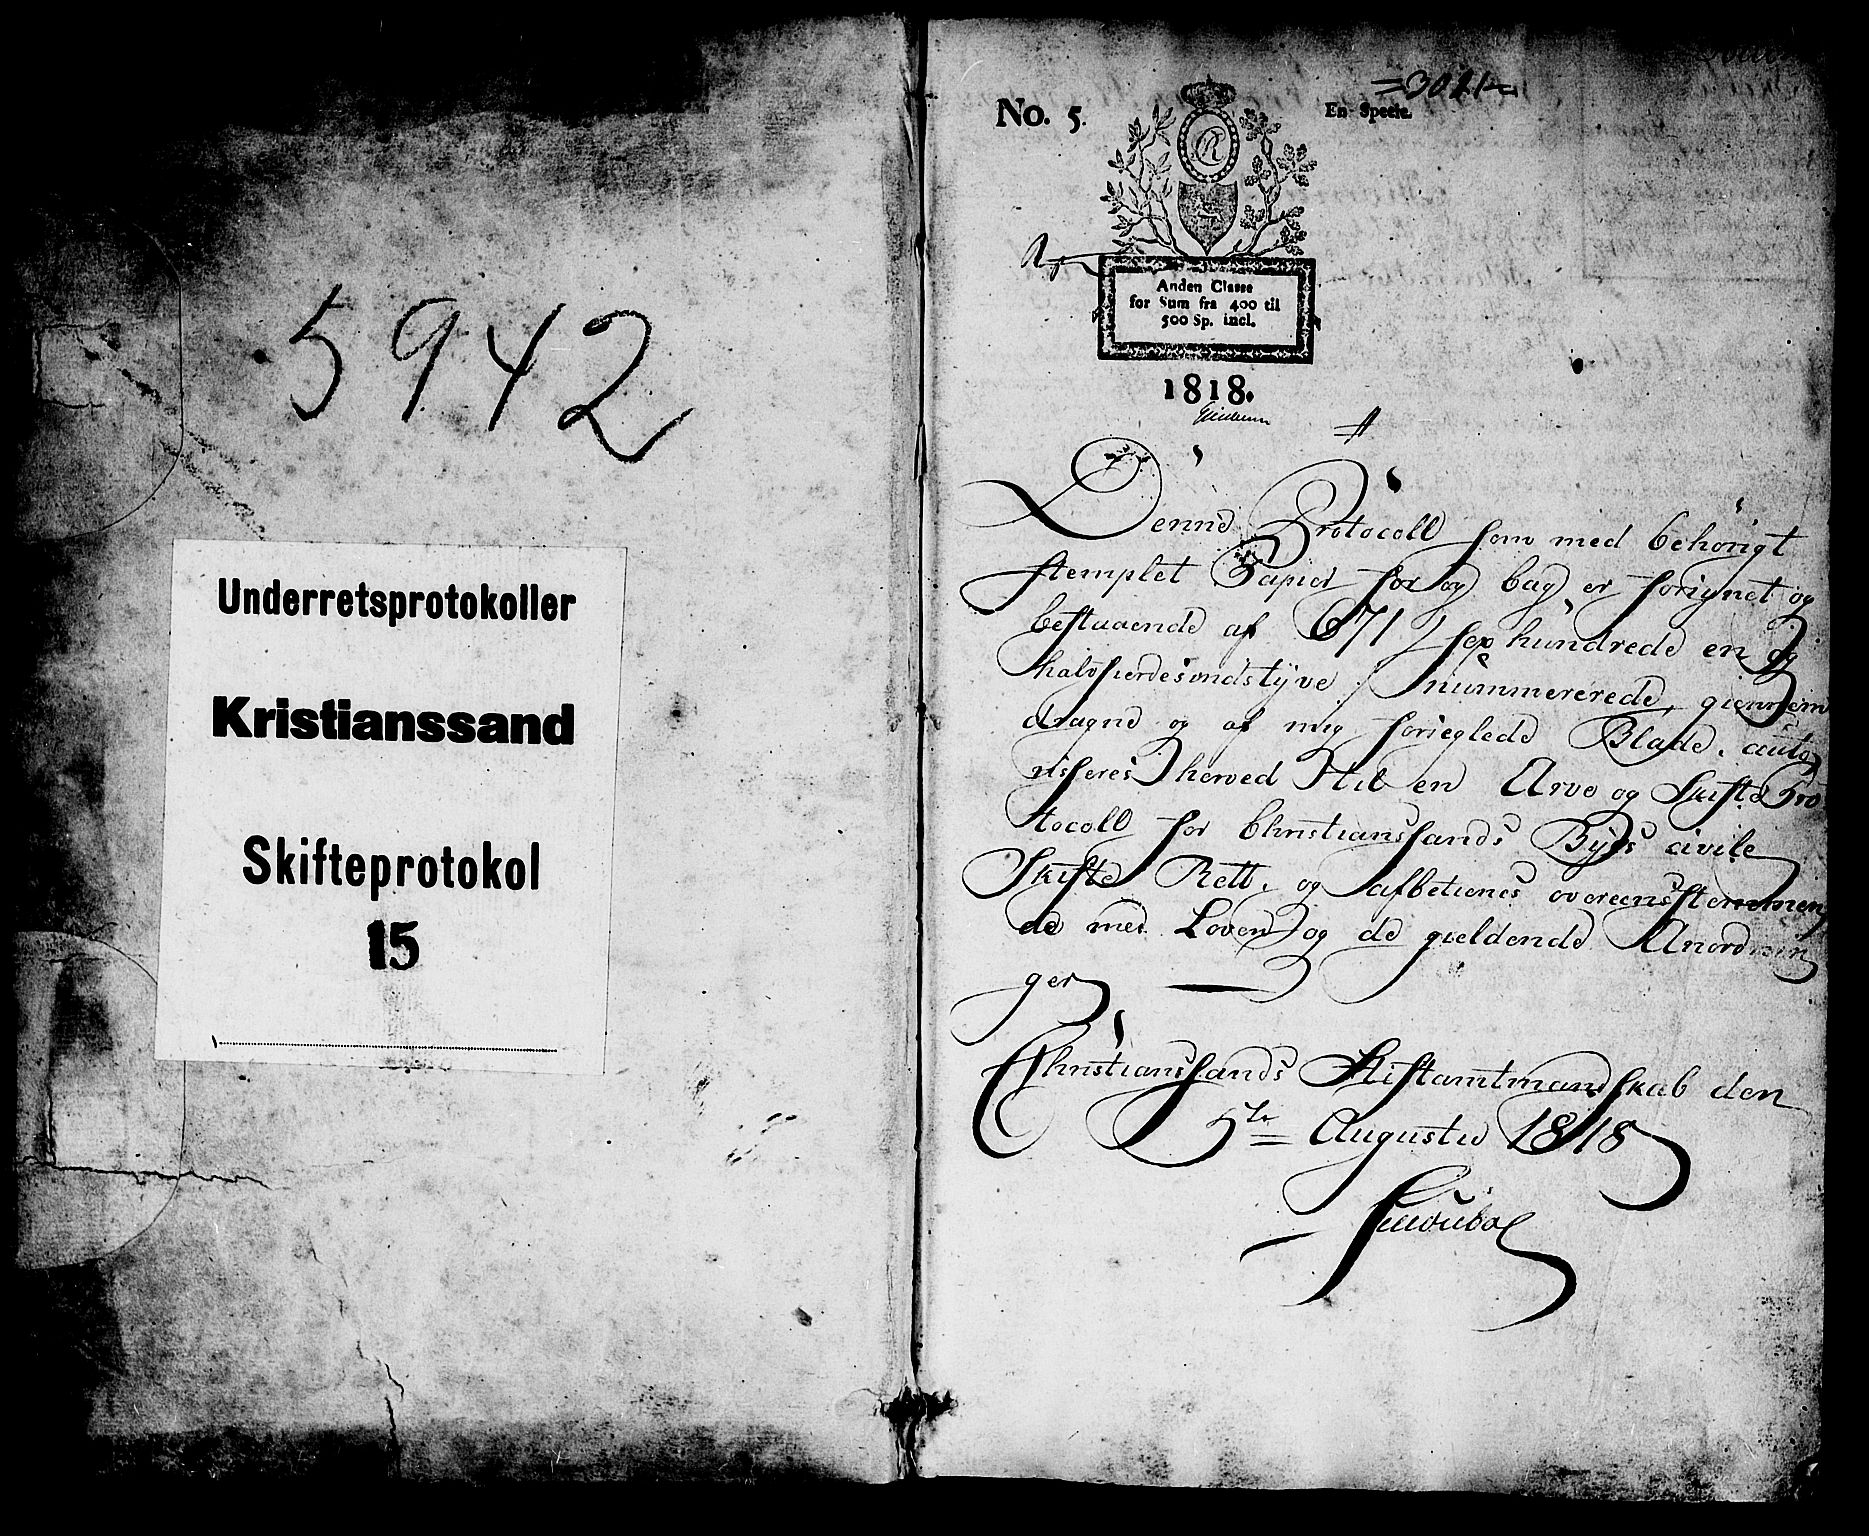 5942
Underretsprotokoller
Kristianssand
Skifteprotokol
15
=3021=
No. 5.
En Specie.
Anden Classe
for Sum fra 400 til
500 Sp. incl.
1818.
Denne Protocoll som med behörigt
stemplet Papiir for og bag er forsynet og
bestaaende af 671 / sex hundrede en og
halvfierdesindstyve / nummererede, giennem
dragne og af mig forseglede Blade, auto
riseres herved til en Arve og Skifte Pro
tocoll for Christianssands Byes civile
Skifte Rett, og afbetienes overeensstemmen
de med Loven og de gieldende Anordnin
ger
Christianssands Stiftamtmandskab den
5te Augusti 1818